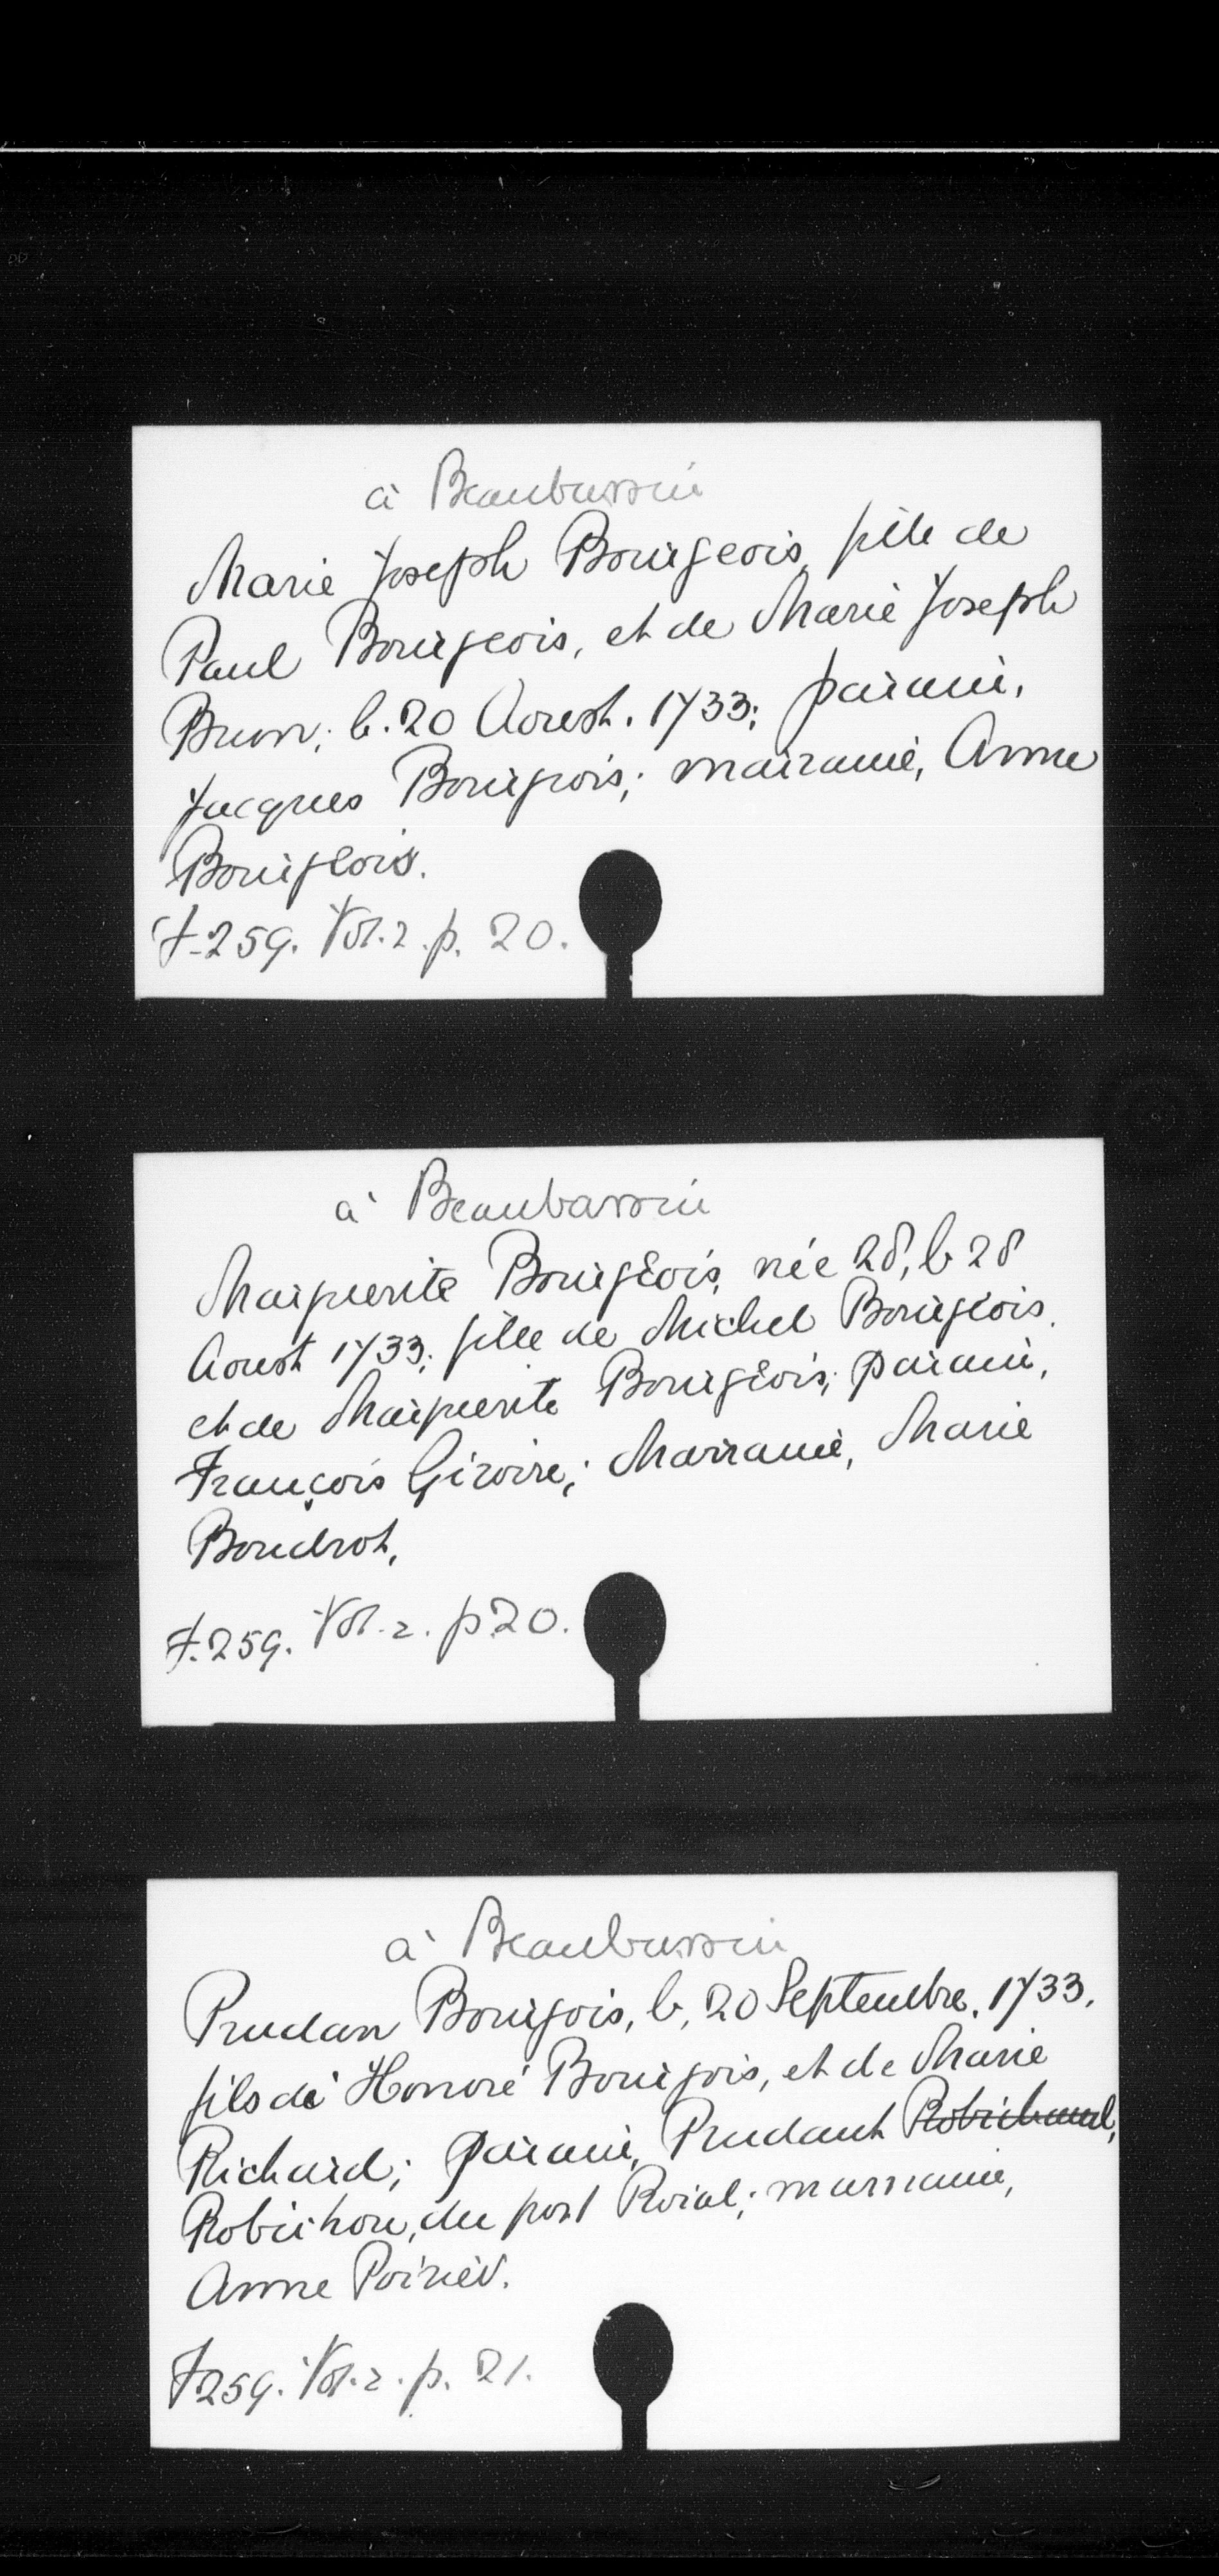 à Beaubassin
Marie Joseph Bourgeois, fille de
Paul Bourgeois, et de Marie Joseph
Brun; b. 20 Aoust. 1733; parain,
Jacques Bourgois; maraine, Anne
Bourgeois.
F. 259. Vol. 2. p. 20.
à Beaubassin
Marguerite Bourgeois, née 28, b 28
Aoust 1733; fille de Michel Bourgeois.
et de Marguerite Bourgeois; parain,
François Giroire; Marraine, Marie
Boudrot,
F. 259. Vol. 2. p 20.
à Beaubassin
Prudan Bourgois, b, 20 Septembre, 1733.
fils de Honoré Bourgois, et de Marie
Richard; parain, Prudant Robichaud,
Robichou, du port Roial; marraine,
Anne Poirier.
F 259. Vol. 2. p. 21.